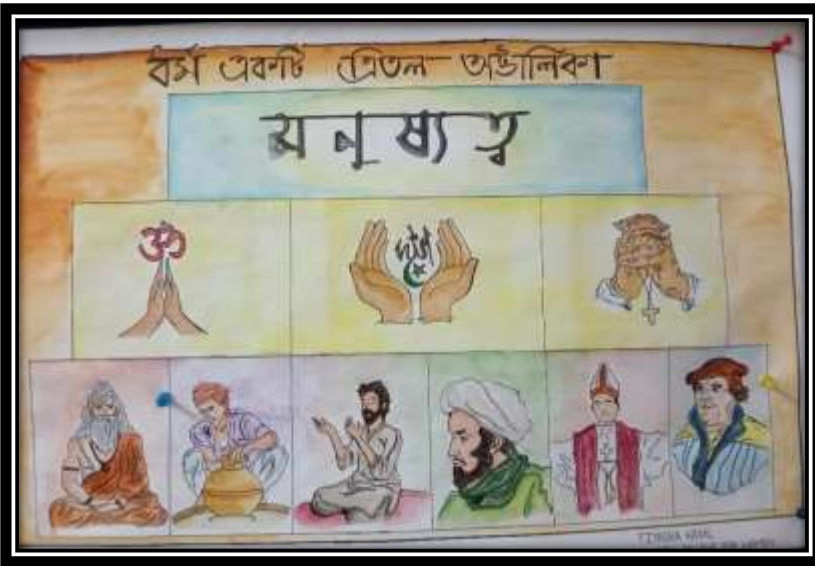 ধর্ম একটি ত্রিতল অট্টালিকা
মনুষ্যত্ব
ॐ